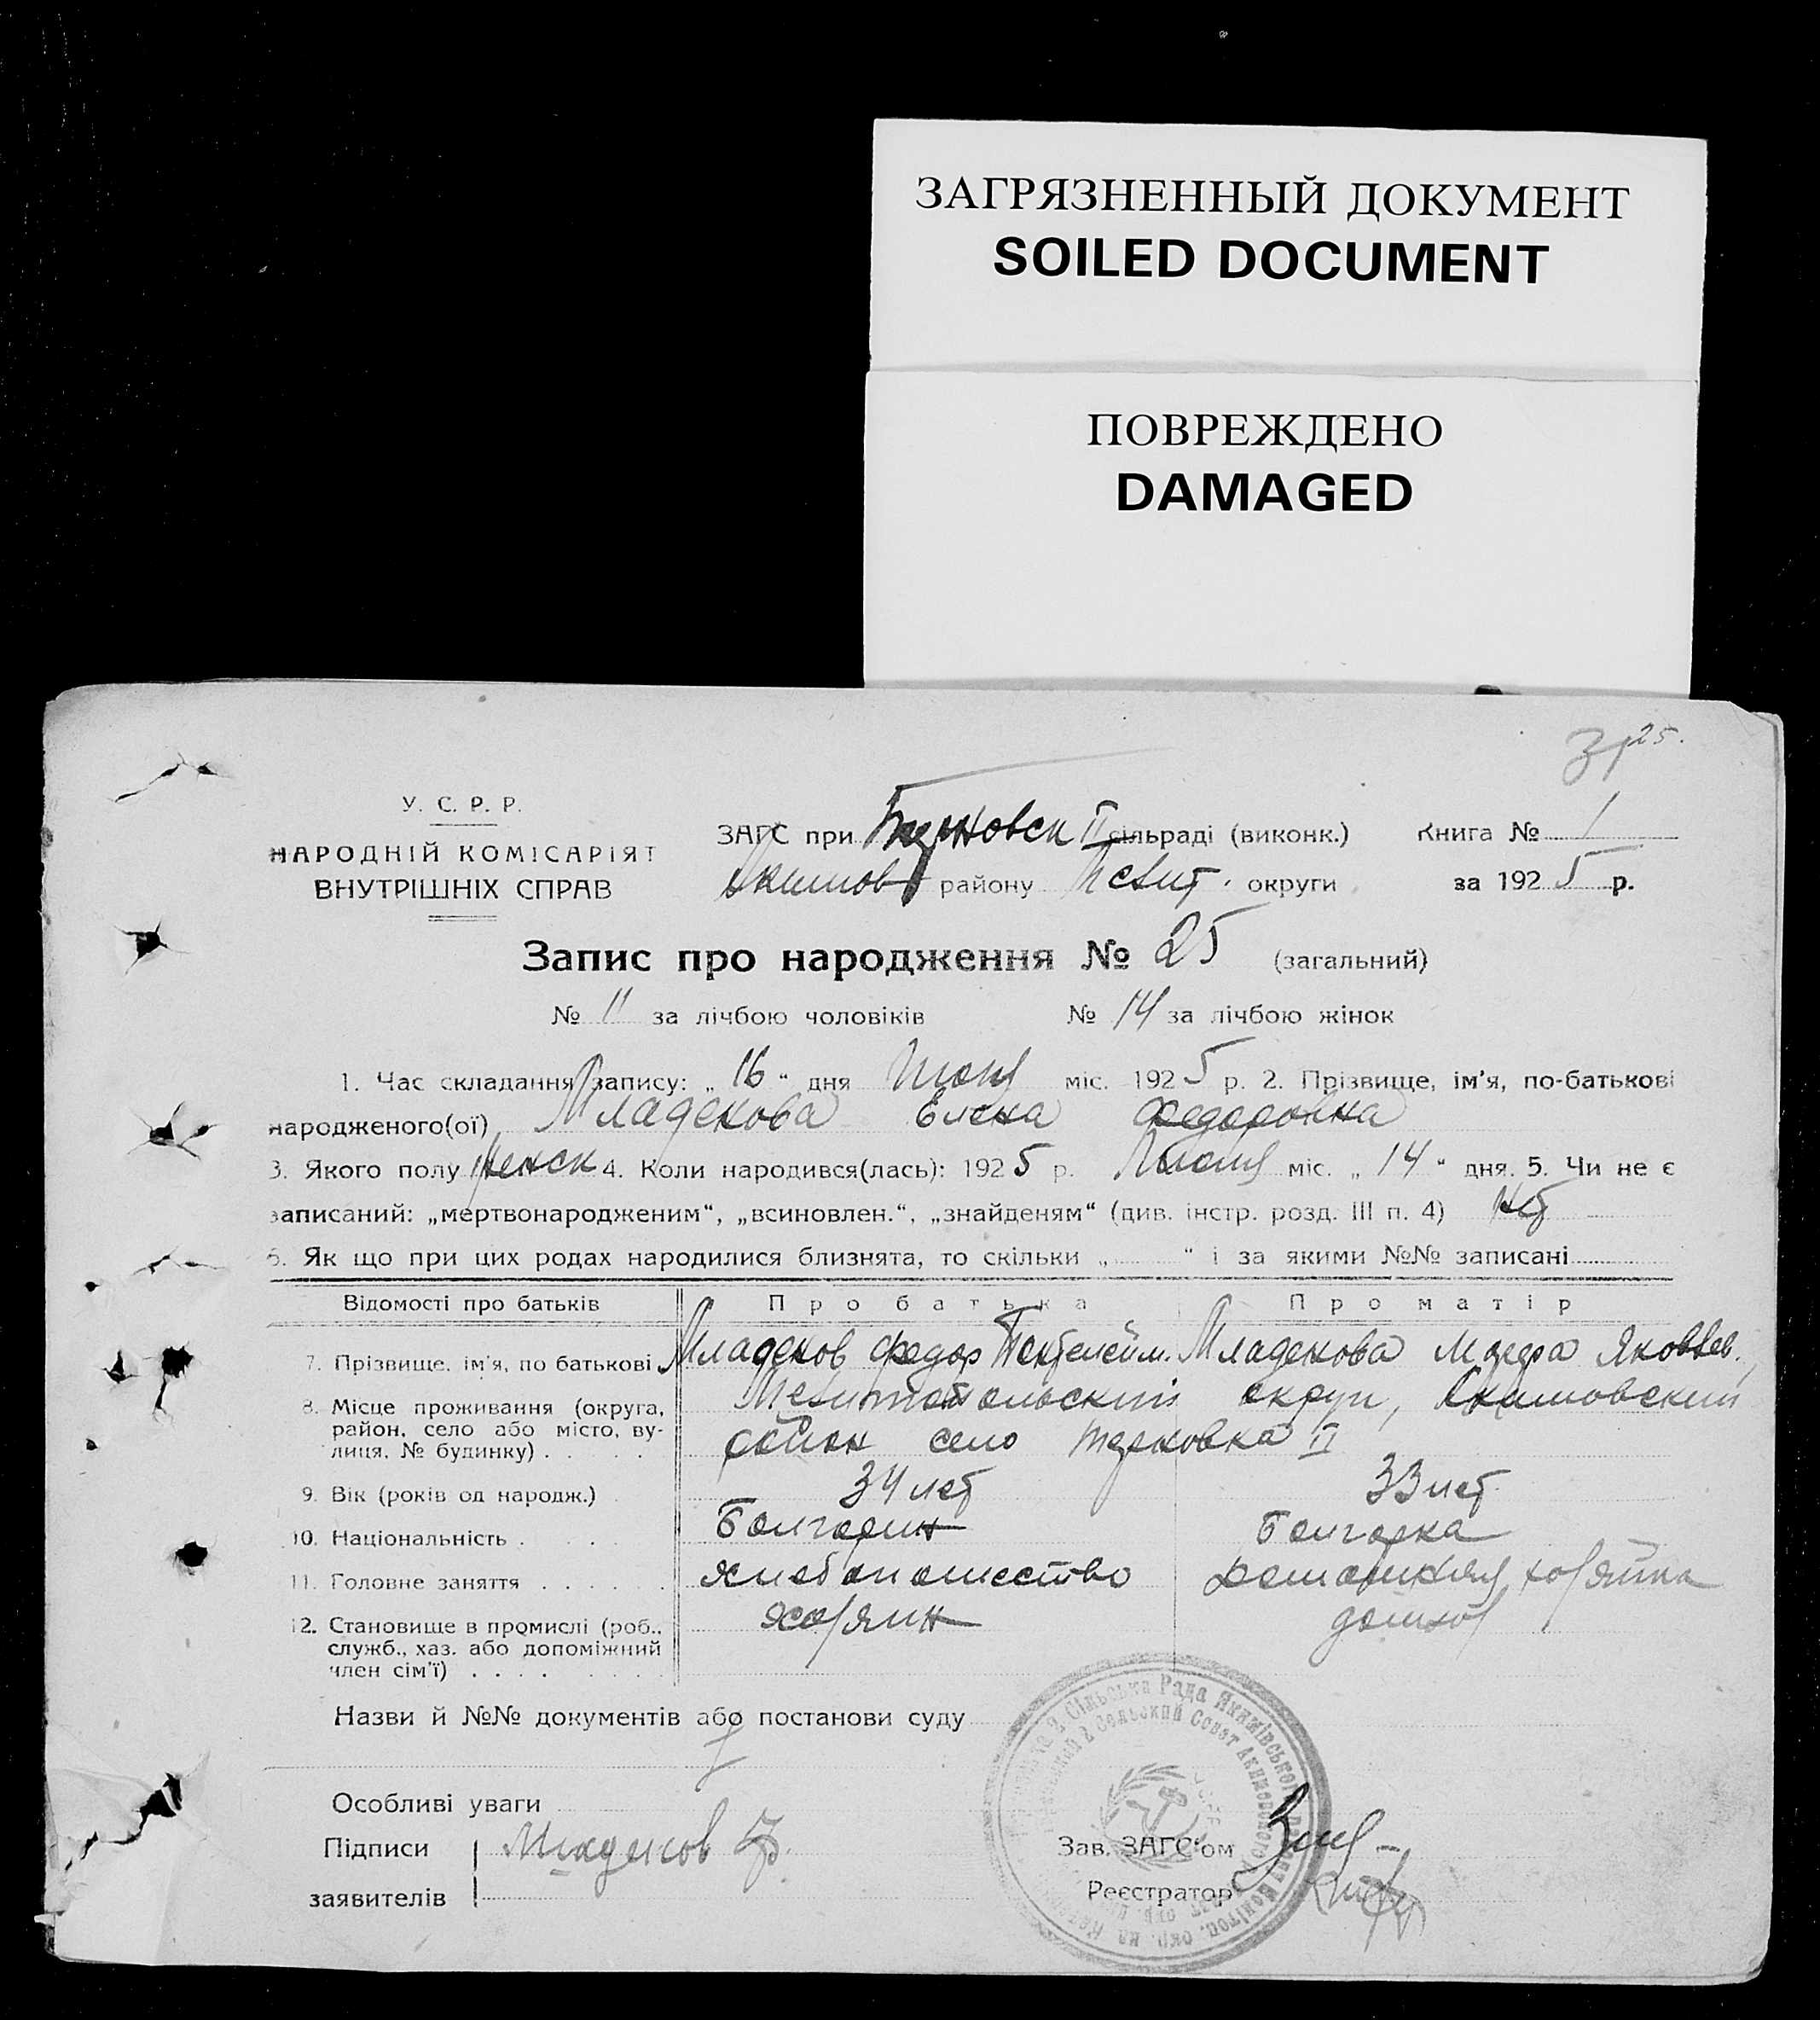 ЗАГРЯЗНЕННЫЙ ДОКУМЕНТ
SOILED DOCUMENT
ПОВРЕЖДЕНО
DAMAGED
25.
У. С. Р. Р.
НАРОДНІЙ КОМІСАРІЯТ
ВНУТРІШНІХ СПРАВ
ЗАГС при II сільраді (виконк.) Книга № 1
Акимов району Мелит. округи за 1925 р.
Запис про народження № 25 (загальний)
№ 11 за лічбою чоловіків № 14 за лічбою жінок
1. Час складання запису: „16“ дня міс. 1925 р. 2. Прізвище, ім’я, по-батькові
народженого(ої) Младенова Елена Федоровна
3. Якого полу женск 4. Коли народився(лась): 1925 р. міс. „14“ дня. 5. Чи не є
записаний: „мертвонародженим“, „всиновлен.“, „знайденям“ (див. інстр. розд. III п. 4) нет
6. Як що при цих родах народилися близнята, то скільки „ “ і за якими №№ записані
Відомості про батьків Про батька Про матір
7. Прізвище, ім’я, по батькові Младенов Федор Пантелейм. Младенова Яковлев.
8. Місце проживання (округа, район, село або місто, вулиця, № будинку) Мелитопольский округ, Акимовский
район село II
9. Вік (років од народж.) 34 лет 33 лет
10. Національність Болгарин Болгарка
11. Головне заняття хлебопашество домашняя хозяйка
12. Становище в промислі (роб., служб., хаз. або допоміжний член сім’ї) хозяин
Назви й №№ документів або постанови суду
Особливі уваги
Підписи заявителів Младенов Ф.
Зав. ЗАГС’ом
Реєстратор
2 Сільська Рада Якимівського
2 Сельский Совет Акимовского